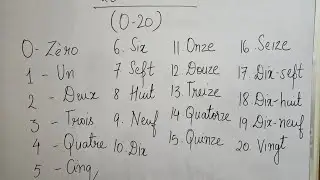 (0-20)
0- Zèro
1 - Un
2 - Deux
3 - Trois
4 - Quatre
5 - Cinq
6. Six
7 Seft
8 Huit
9. Neuf
10. Dix
11. Onze
12. Douze
13. Treize
14 Quatorze
15. Quinze
16. Seize
17. Dix-seft
18. Dix-huit
19. Dix-neuf
20. Vingt